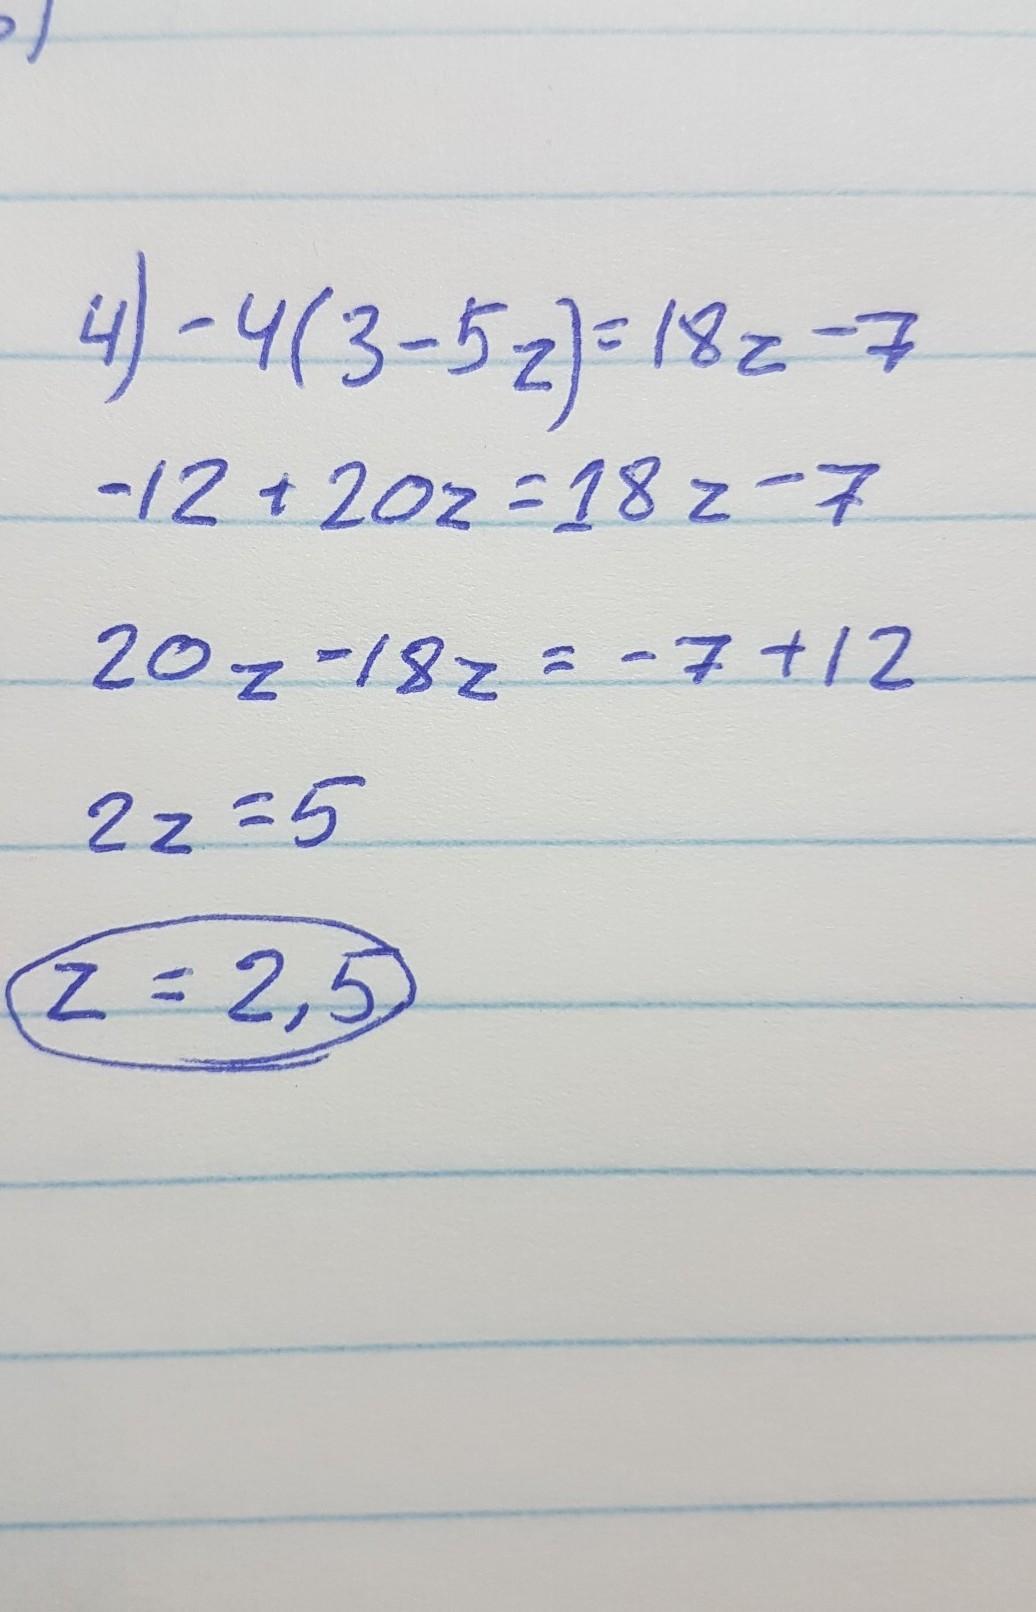 4) -4(3-5z)=18z-7
-12+20z=18z-7
20z-18z=-7+12
2z=5
z=2,5